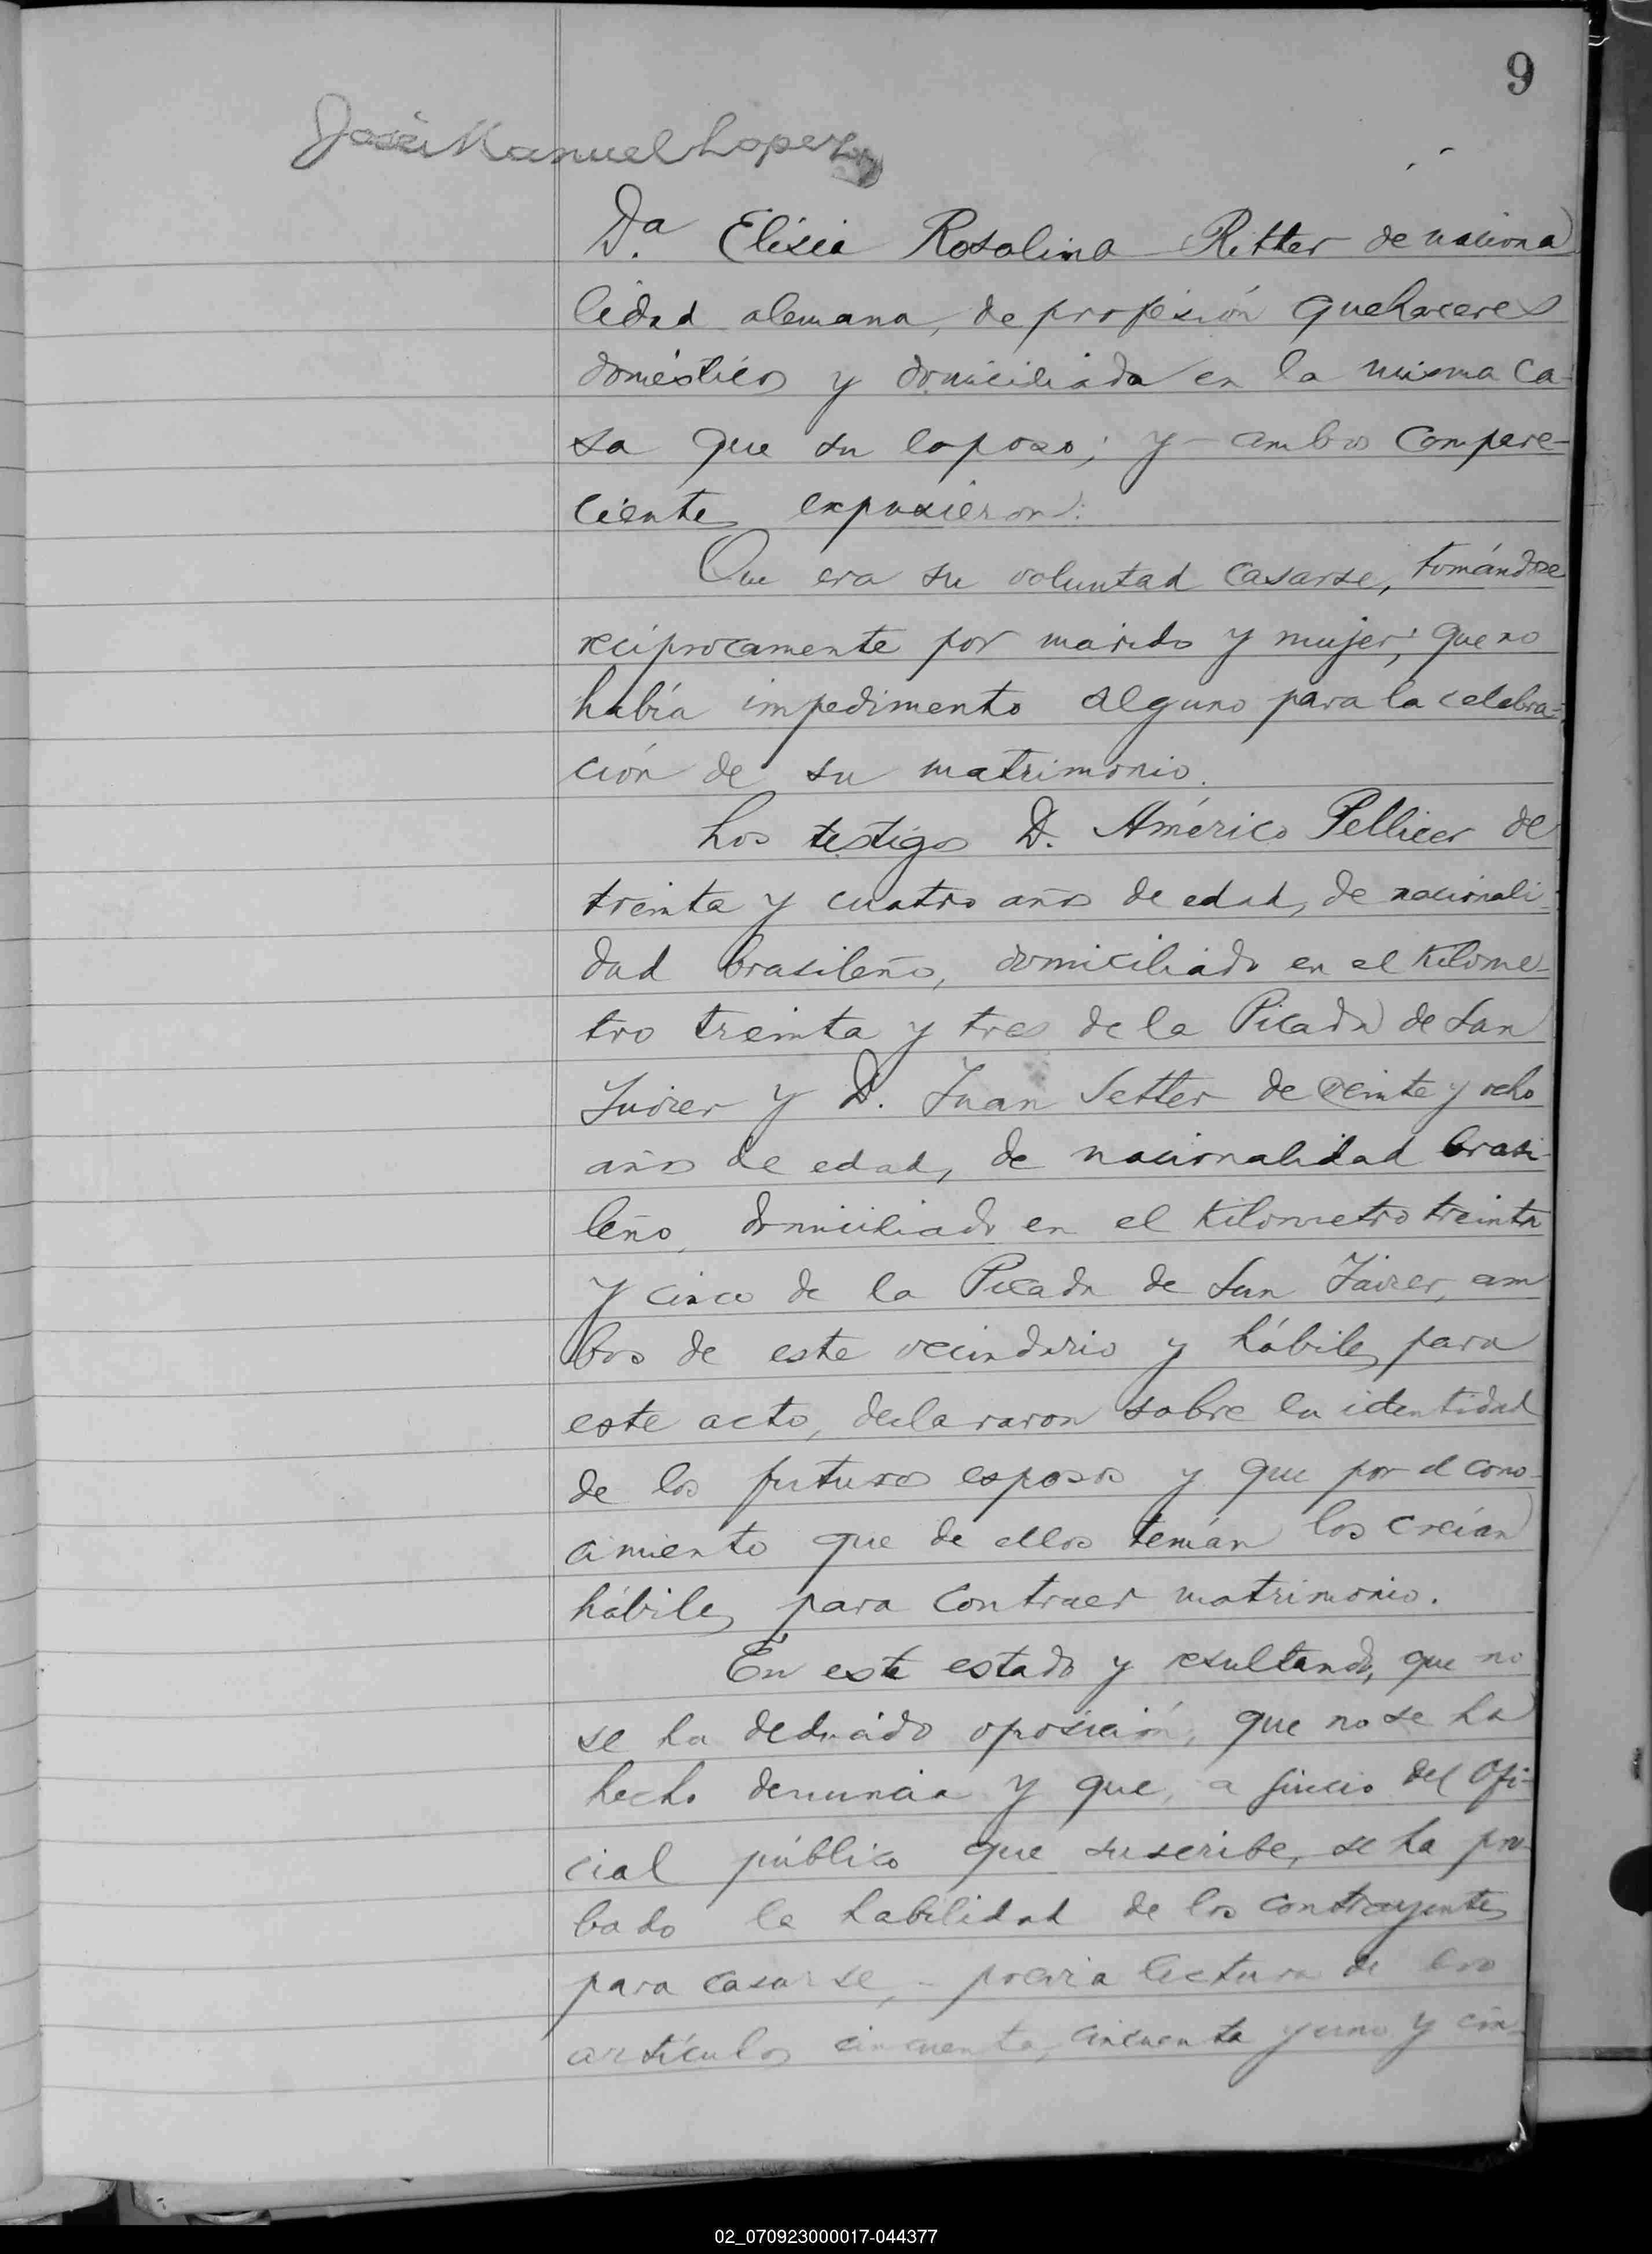 9
José Manuel Lopez
Da. Elisia Rosalina Ritter de naciona
lidad alemana, de profesión quehaceres
domésticos y domiciliada en la misma ca-
sa que su esposo; y ambos compare-
cientes expusieron:
Que era su voluntad casarse, tomándose
recíprocamente por marido y mujer; que no
había impedimento alguno para la celebra=
ción de su matrimonio.
Los testigos D. Américo Pellicer de
treinta y cuatro años de edad, de nacionali
dad brasileño, domiciliado en el kilome-
tro treinta y tres de la Picada de San
Javier y D. Juan Setter de veinte y ocho
años de edad, de nacionalidad brasi-
leño, domiciliado en el kilometro treinta
y cinco de la Picada de San Javier, am
bos de este vecindario y hábiles para
este acto, declararon sobre la identidad
de los futuros esposos y que por el cono-
cimiento que de ellos tenían los creían
hábiles para contraer matrimonio.
En este estado y resultando, que no
se ha deducido oposición, que no se ha
hecho denuncia y que, a juicio del Ofi-
cial público que suscribe, se ha pro-
bado la habilidad de los contrayentes
para casarse, - previa lectura de los
artículos cincuenta, cincuenta y uno y cin-
02_070923000017-044377